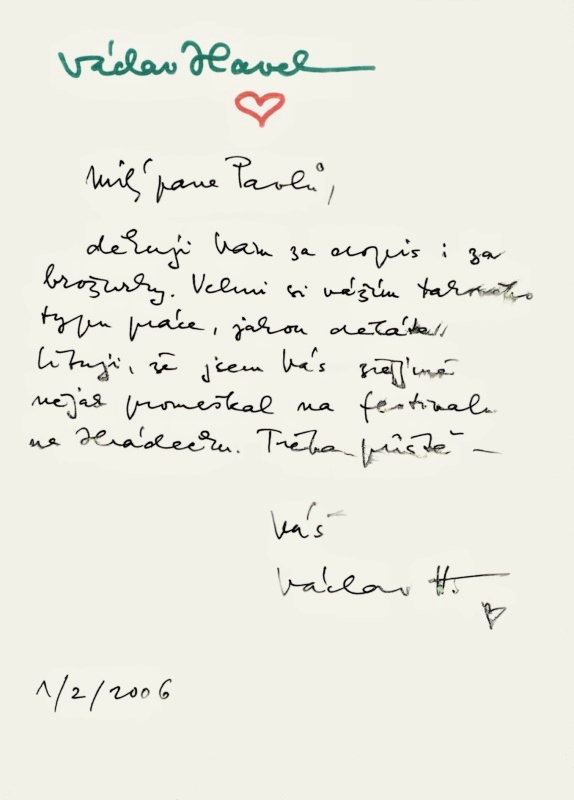 Václav Havel
Milý pane Pavlů,
děkuji Vám za dopis i za
brožurky. Velmi si vážím takového
typu práce, jakou děláte!
Lituji, že jsem Vás zřejmě
nějak promeškal na festivalu
na Hrádečku. Třeba příště –
Váš
Václav H.
1/2/2006